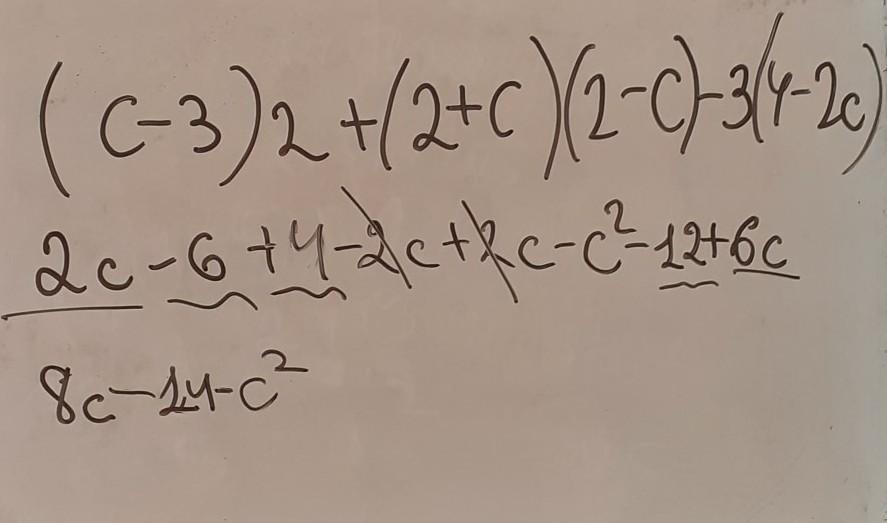 (c-3)2+(2+c)(2-c)-3(4-2c)
2c-6+4-2c+2c-c²-12+6c
8c-14-c²